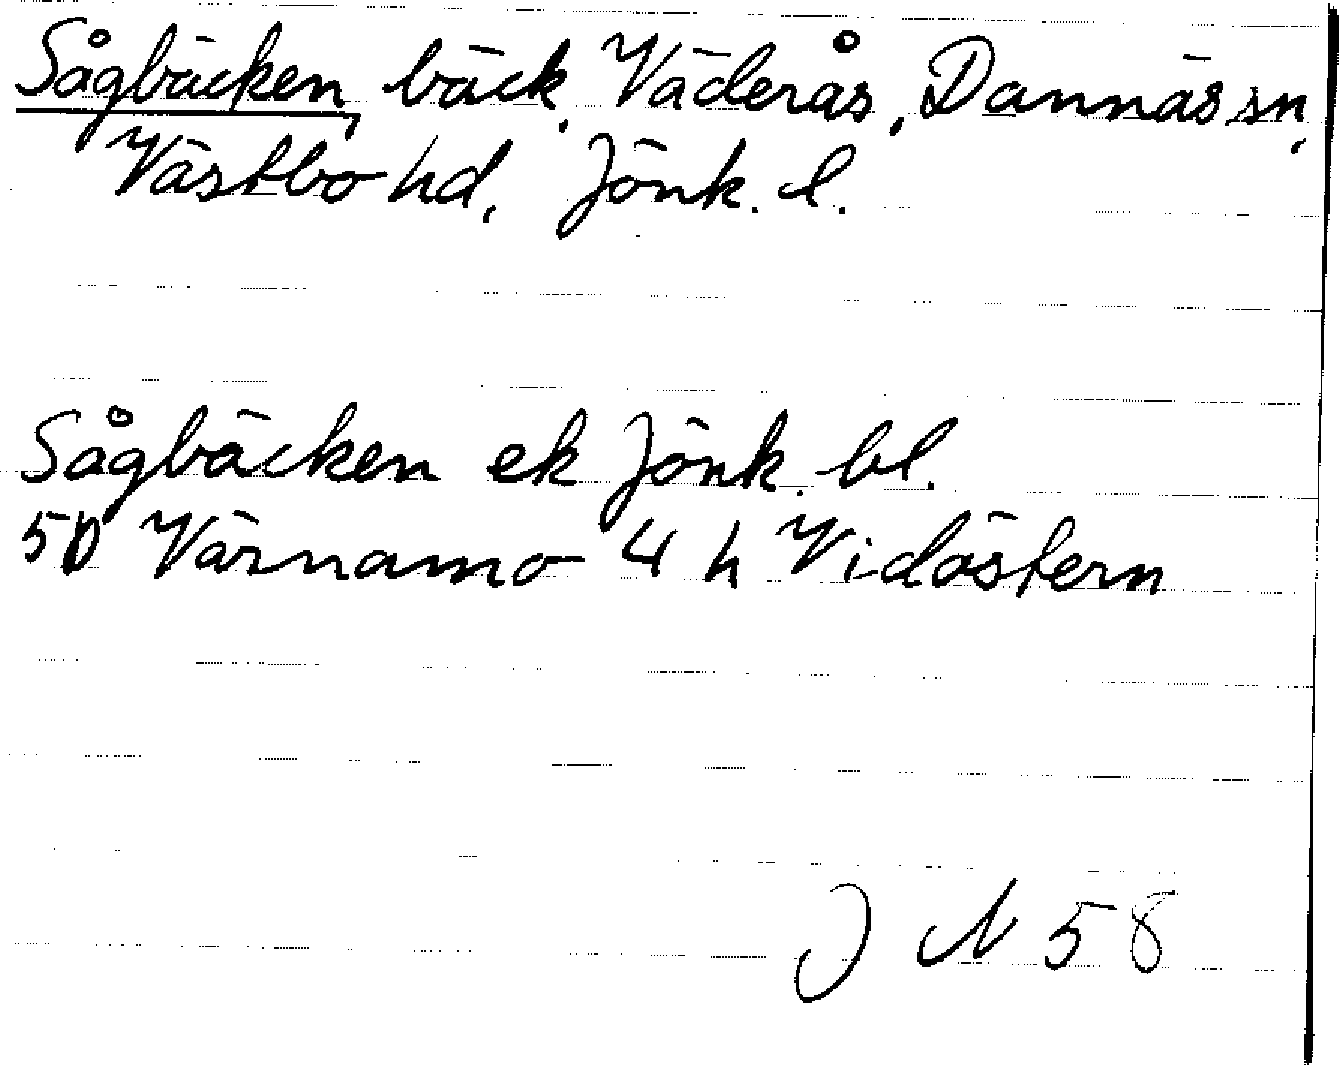 Sågbäcken, bäck, Väderås, Dannäs sn,
Västbo hd, Jönk. l.
Sågbäcken ek Jönk. bl.
5D Värnamo 4 h Vidöstern
J N 58